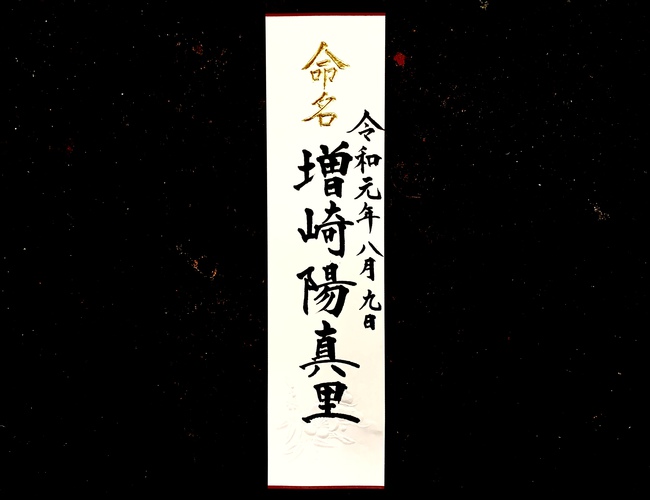 令和元年八月九日
命名
増崎陽真里